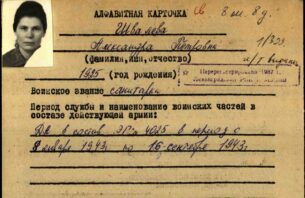 АЛФАВИТНАЯ КАРТОЧКА
8 м 8 д.
Ивалева
Александра Петровна
(фамилия, имя, отчество)
1925 (год рождения)
Перерегистрирован 1987 г.
Воинское звание санитарка
Период службы и наименование воинских частей в
составе действующей армии:
в период с
8 января 1943г по 16 сентября 1943г.